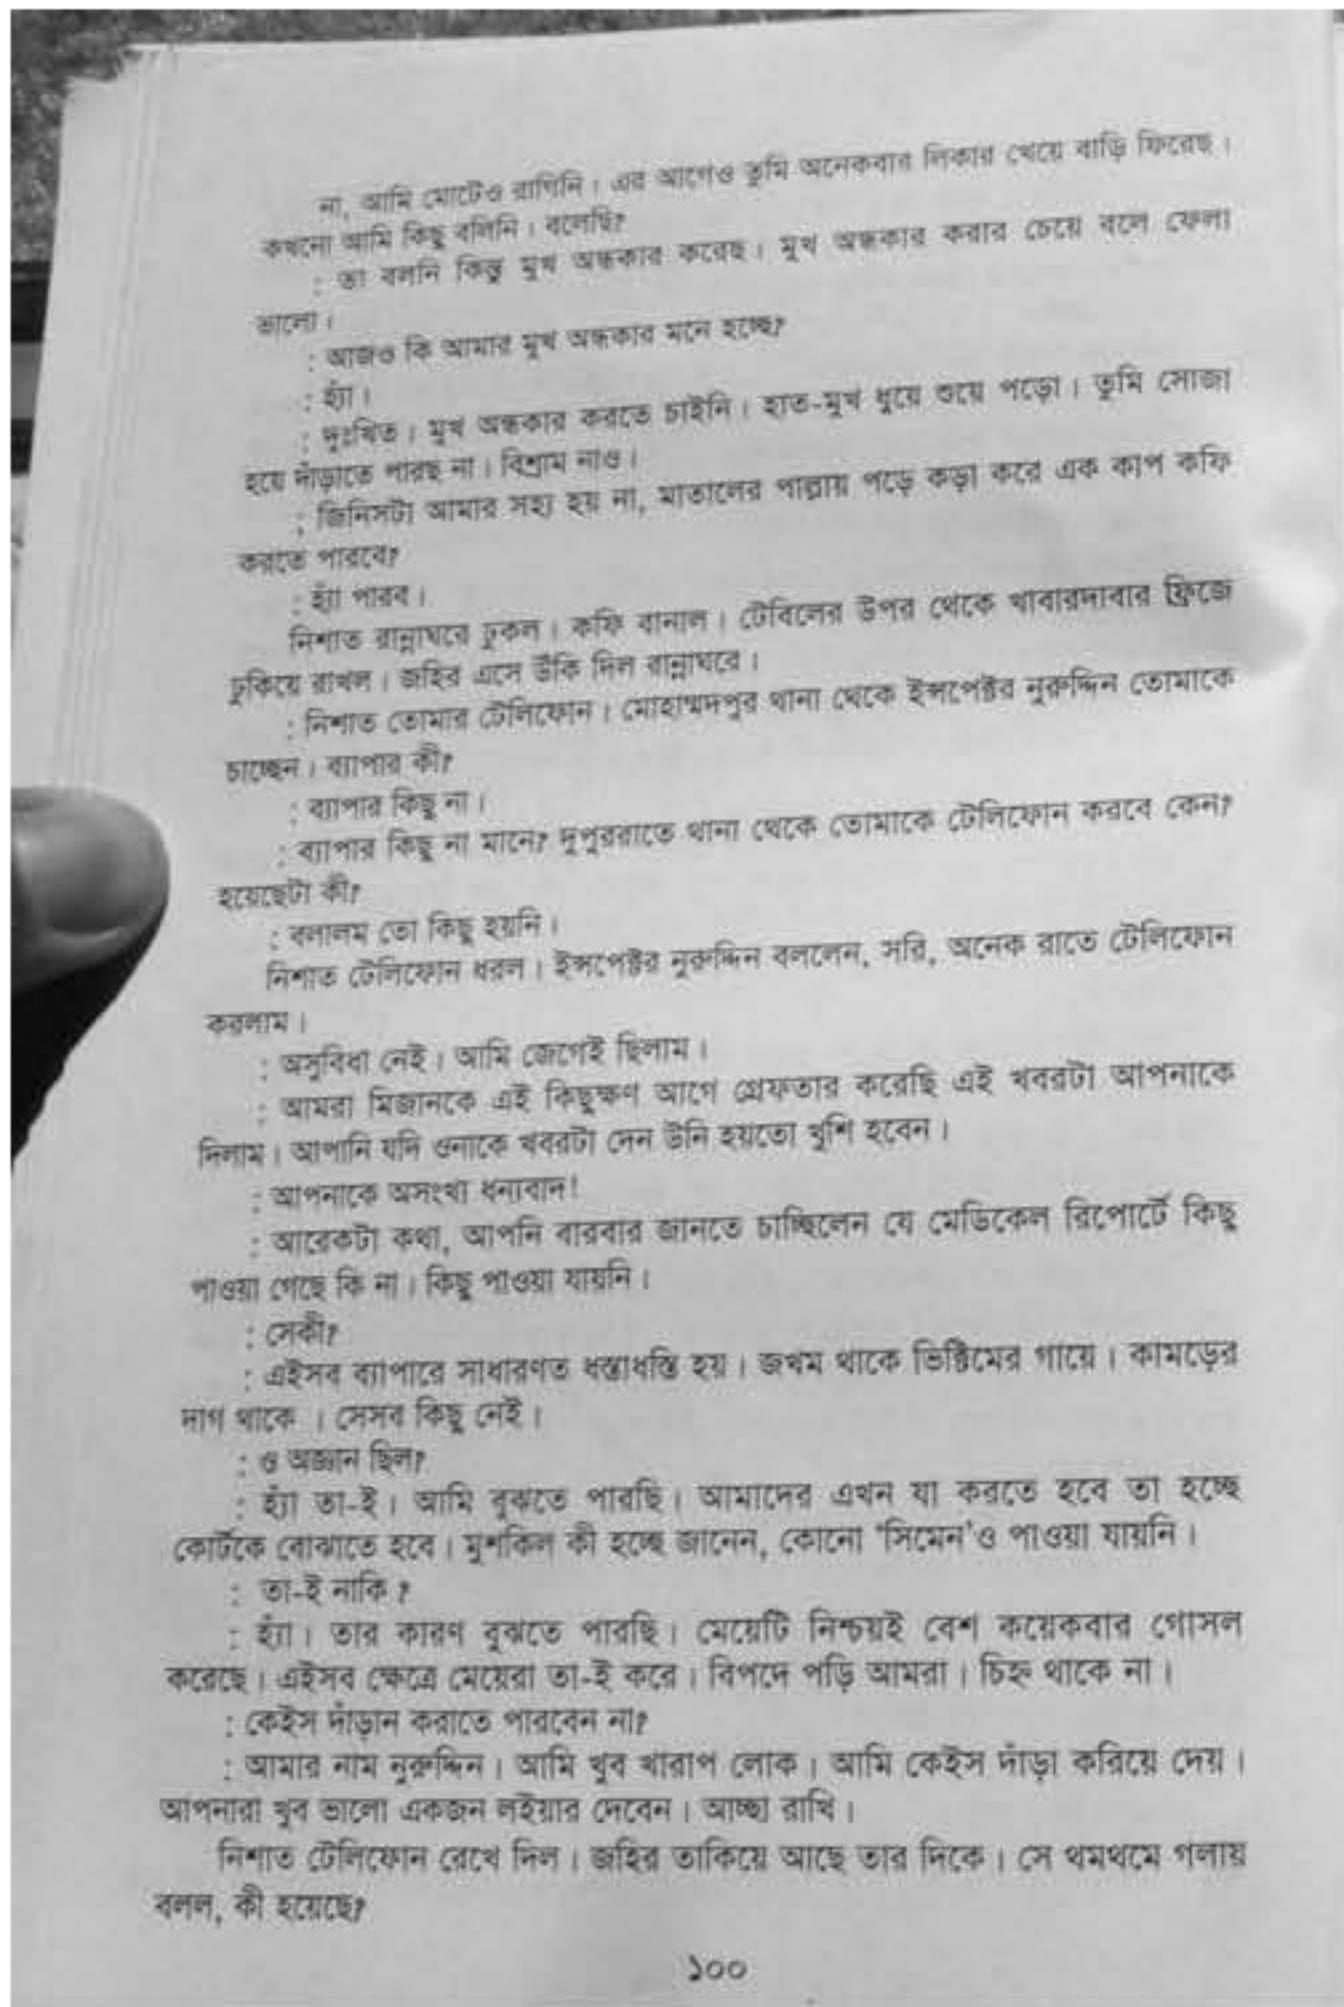 না, আমি মোটেও রাগিনি। এর আগেও তুমি অনেকবার লিকার খেয়ে বাড়ি ফিরেছ।
কখনো আমি কিছু বলিনি। বলেছি?
: তা বলনি কিন্তু মুখ অন্ধকার করেছ। মুখ অন্ধকার করার চেয়ে বলে ফেলা
ভালো।
: আজও কি আমার মুখ অন্ধকার মনে হচ্ছে?
: হ্যাঁ।
: দুঃখিত। মুখ অন্ধকার করতে চাইনি। হাত-মুখ ধুয়ে শুয়ে পড়ো। তুমি সোজা
হয়ে দাঁড়াতে পারছ না। বিশ্রাম নাও।
: জিনিসটা আমার সহ্য হয় না, মাতালের পাল্লায় পড়ে কড়া করে এক কাপ কফি
করতে পারবে?
: হ্যাঁ পারব।
নিশাত রান্নাঘরে ঢুকল। কফি বানাল। টেবিলের উপর থেকে খাবারদাবার ফ্রিজে
ঢুকিয়ে রাখল। জহির এসে উঁকি দিল রান্নাঘরে।
: নিশাত তোমার টেলিফোন। মোহাম্মদপুর থানা থেকে ইন্সপেক্টর নুরুদ্দিন তোমাকে
চাচ্ছেন। ব্যাপার কী?
: ব্যাপার কিছু না।
: ব্যাপার কিছু না মানে? দুপুররাতে থানা থেকে তোমাকে টেলিফোন করবে কেন?
হয়েছেটা কী?
: বলালম তো কিছু হয়নি।
নিশাত টেলিফোন ধরল। ইন্সপেক্টর নুরুদ্দিন বললেন, সরি, অনেক রাতে টেলিফোন
করলাম।
: অসুবিধা নেই। আমি জেগেই ছিলাম।
: আমরা মিজানকে এই কিছুক্ষণ আগে গ্রেফতার করেছি এই খবরটা আপনাকে
দিলাম। আপানি যদি ওনাকে খবরটা দেন উনি হয়তো খুশি হবেন।
: আপনাকে অসংখ্য ধন্যবাদ!
: আরেকটা কথা, আপনি বারবার জানতে চাচ্ছিলেন যে মেডিকেল রিপোর্টে কিছু
পাওয়া গেছে কি না। কিছু পাওয়া যায়নি।
: সেকী?
: এইসব ব্যাপারে সাধারণত ধস্তাধস্তি হয়। জখম থাকে ভিক্টিমের গায়ে। কামড়ের
দাগ থাকে । সেসব কিছু নেই।
: ও অজ্ঞান ছিল?
: হ্যাঁ তা-ই। আমি বুঝতে পারছি। আমাদের এখন যা করতে হবে তা হচ্ছে
কোর্টকে বোঝাতে হবে। মুশকিল কী হচ্ছে জানেন, কোনো ‘সিমেন’ও পাওয়া যায়নি।
: তা-ই নাকি ?
: হ্যাঁ। তার কারণ বুঝতে পারছি। মেয়েটি নিশ্চয়ই বেশ কয়েকবার গোসল
করেছে। এইসব ক্ষেত্রে মেয়েরা তা-ই করে। বিপদে পড়ি আমরা। চিহ্ন থাকে না।
: কেইস দাঁড়ান করাতে পারবেন না?
: আমার নাম নুরুদ্দিন। আমি খুব খারাপ লোক। আমি কেইস দাঁড়া করিয়ে দেয়।
আপনারা খুব ভালো একজন লইয়ার দেবেন। আচ্ছা রাখি।
নিশাত টেলিফোন রেখে দিল। জহির তাকিয়ে আছে তার দিকে। সে থমথমে গলায়
বলল, কী হয়েছে?
১০০